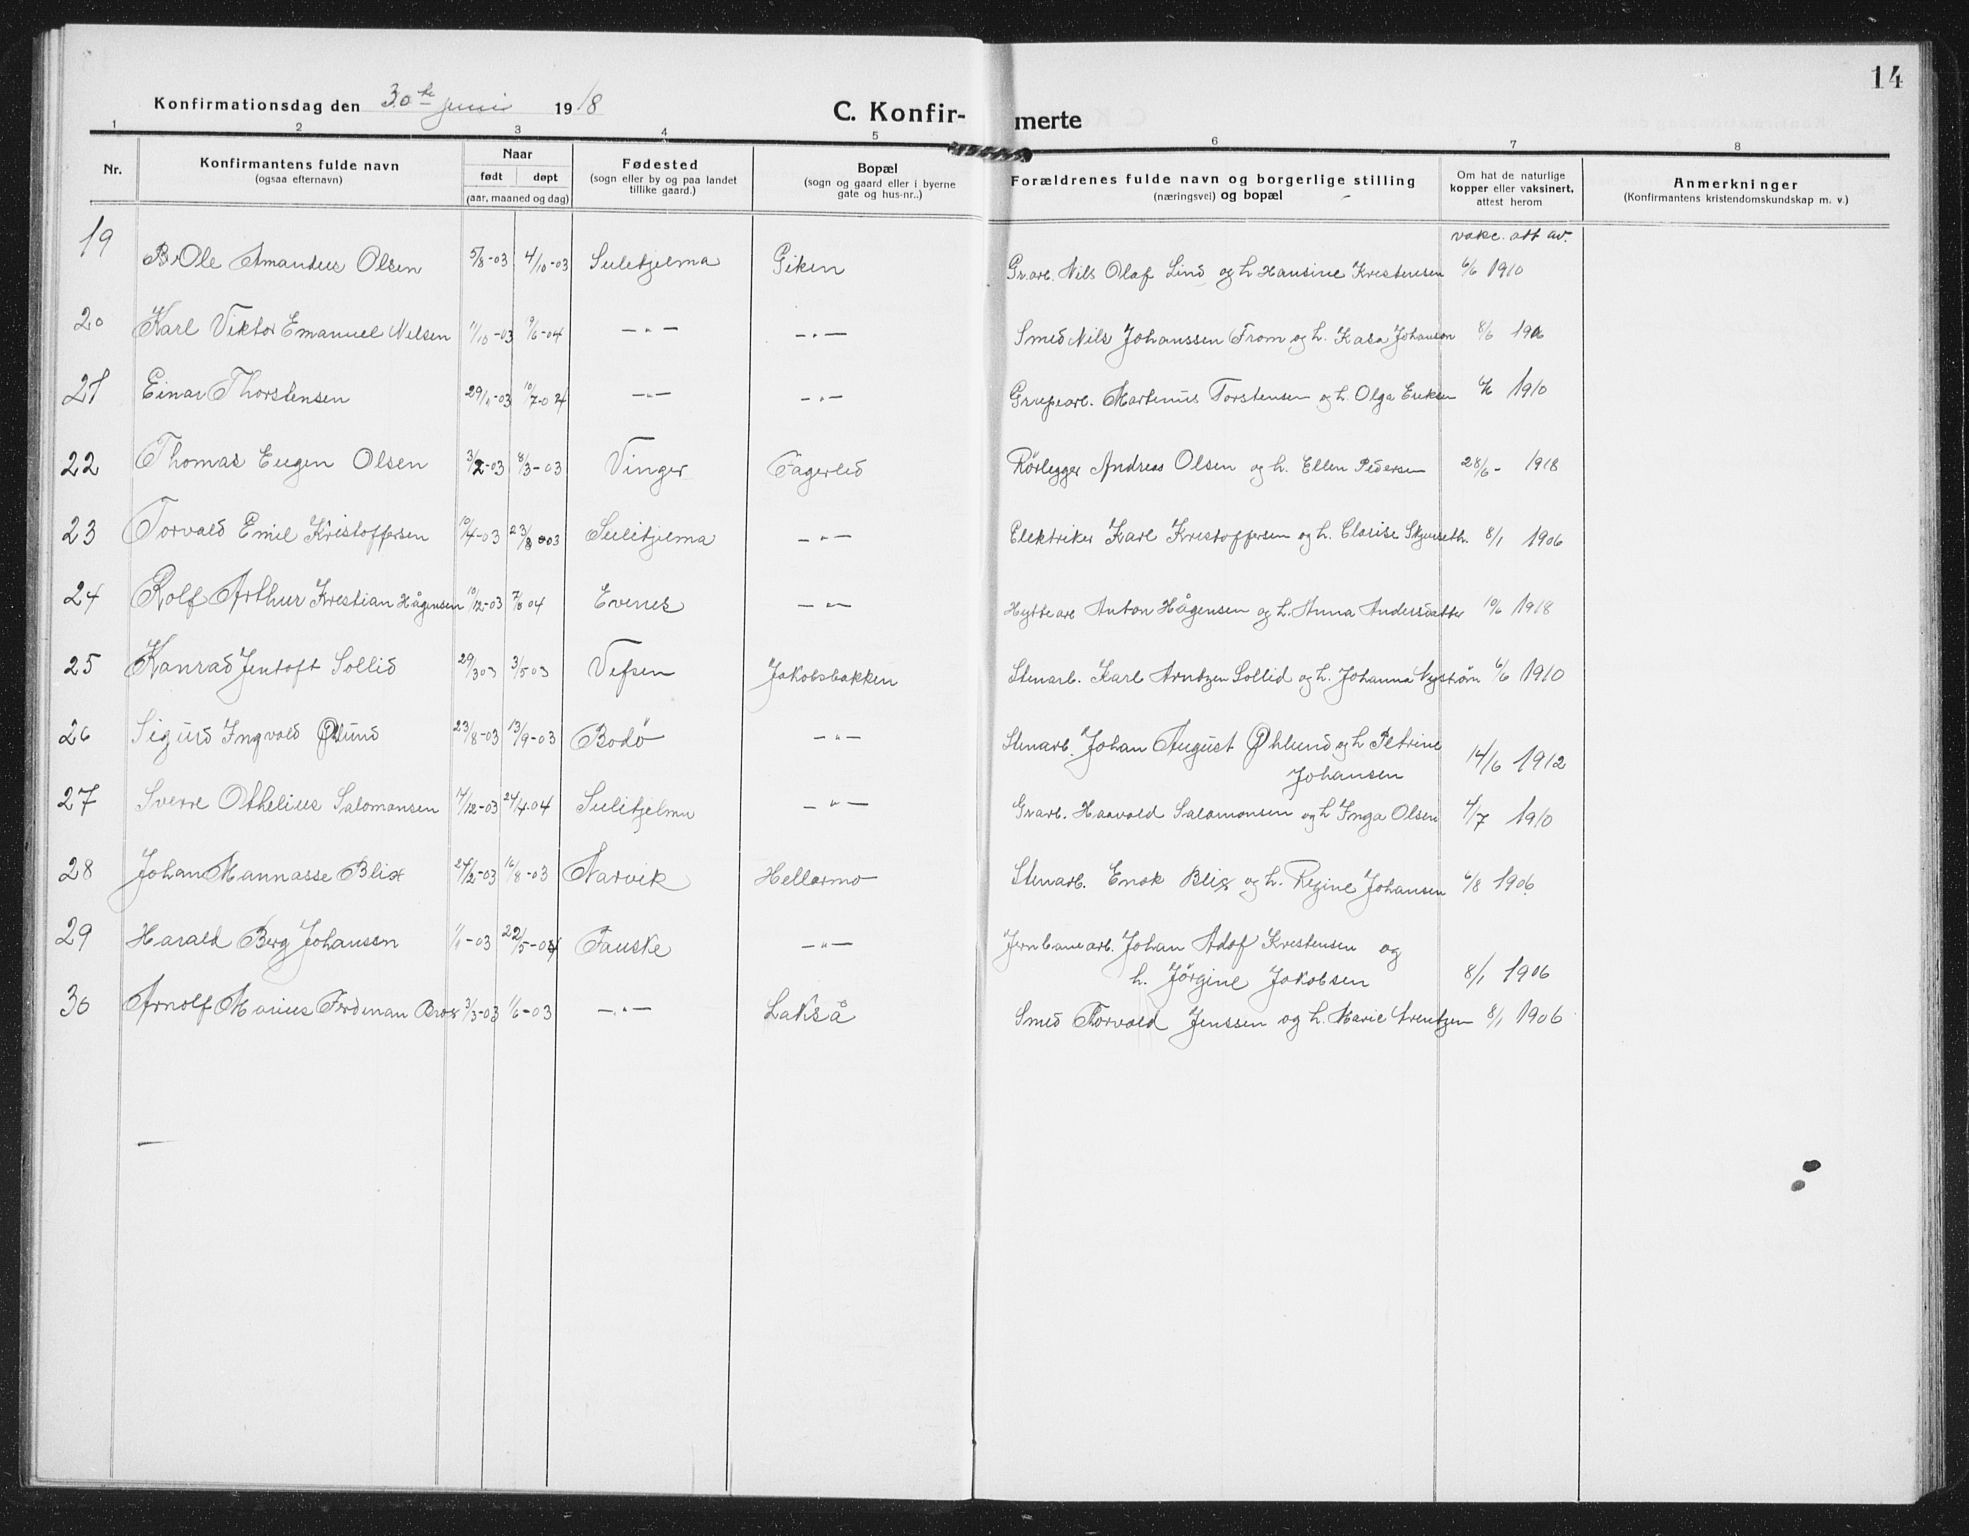 14
Konfirmationsdag den 30te juni 1918
C. Konfir- merte
1 2 3 4 5 6 7 8
Nr.
Konfirmantens fulde navn
(ogsaa efternavn)
Naar
født døpt
(aar, maaned og dag)
Fødested
(sogn eller by og paa landet
tillike gaard.)
Bopæl
(sogn og gaard eller i byerne
gate og hus-nr..)
Forældrenes fulde navn og borgerlige stilling
(næringsvei) og bopæl
Om hat de naturlige
kopper eller vaksinert,
attest herom
Anmerkninger
(Konfirmantens kristendomskundskap m. v.)
vakc. att av.
19 Ole Amandus Olsen 5/8-03 4/10-03 Sulitjelma Giken Gr.arb. Nils Olaf Lind og h. Hansine Kristensen 6/6 1910
20 Karl Viktor Emanuel Nilsen 11/10-03 9/6-04 -"- -"- Smed Nils Johanssen From og h. Kasa Johanson 8/6 1906
21 Einar Thorstensen 29/11-03 10/7-04 -"- -"- Grupearb. Martinus Torstensen og h. Olga Eriksen 6/6 1910
22 Thomas Eugen Olsen 3/2-03 8/3-03 Vinger Fagerlid Rörlegger Andreas Olsen og h. Ellen Pedersen 28/6- 1918
23 Torvald Emil Kristoffersen 10/4-03 23/8-03 Sulitjelma -"- Elektriker Karl Kristoffersen og h. Clarise 8/1 1906
24 Rolf Arthur Kristian Hågensen 10/12-03 7/8 04 Evenes -"- Hyttearb Anton Hågensen og h. Anna Andersdatter 10/6 1918
25 Konrad Jentoft Sollid 29/3 03 3/5 03 Vefsen Jakobsbakken Stenarb. Karl Arntzen Sollid og h. Johanna Nyström 6/6 1910
26 Sigurd Ingvald Øhlund 23/8-03 13/9-03 Bodö -"- Stenarb. Johan August Øhlund og h Petrine
Johansen 14/6 1912
27 Sverre Othelius Salomonsen 17/12-03 24/4-04 Sulitjelma -"- Gr.arb. Haavald Salamonsen og h Inga Olsen 4/7 1910
28 Johan Mannasse Blix 27/2-03 16/8-03 Narvik Hellarmo Stenarb. Enok Blix og h. Regine Johansen 6/8 1906
29 Harald Berg Johansen 1/1-03 22/5-04 Fauske -"- Jernbanearb. Johan Adof Kristensen og
h. Jörgine Jakobsen 8/1 1906
30 Arnolf Marius Ferdinan 3/3-03 1/6-03 -"- Lakså Smed Torvald Jenssen og h. Marie Arentzen 8/1 1906